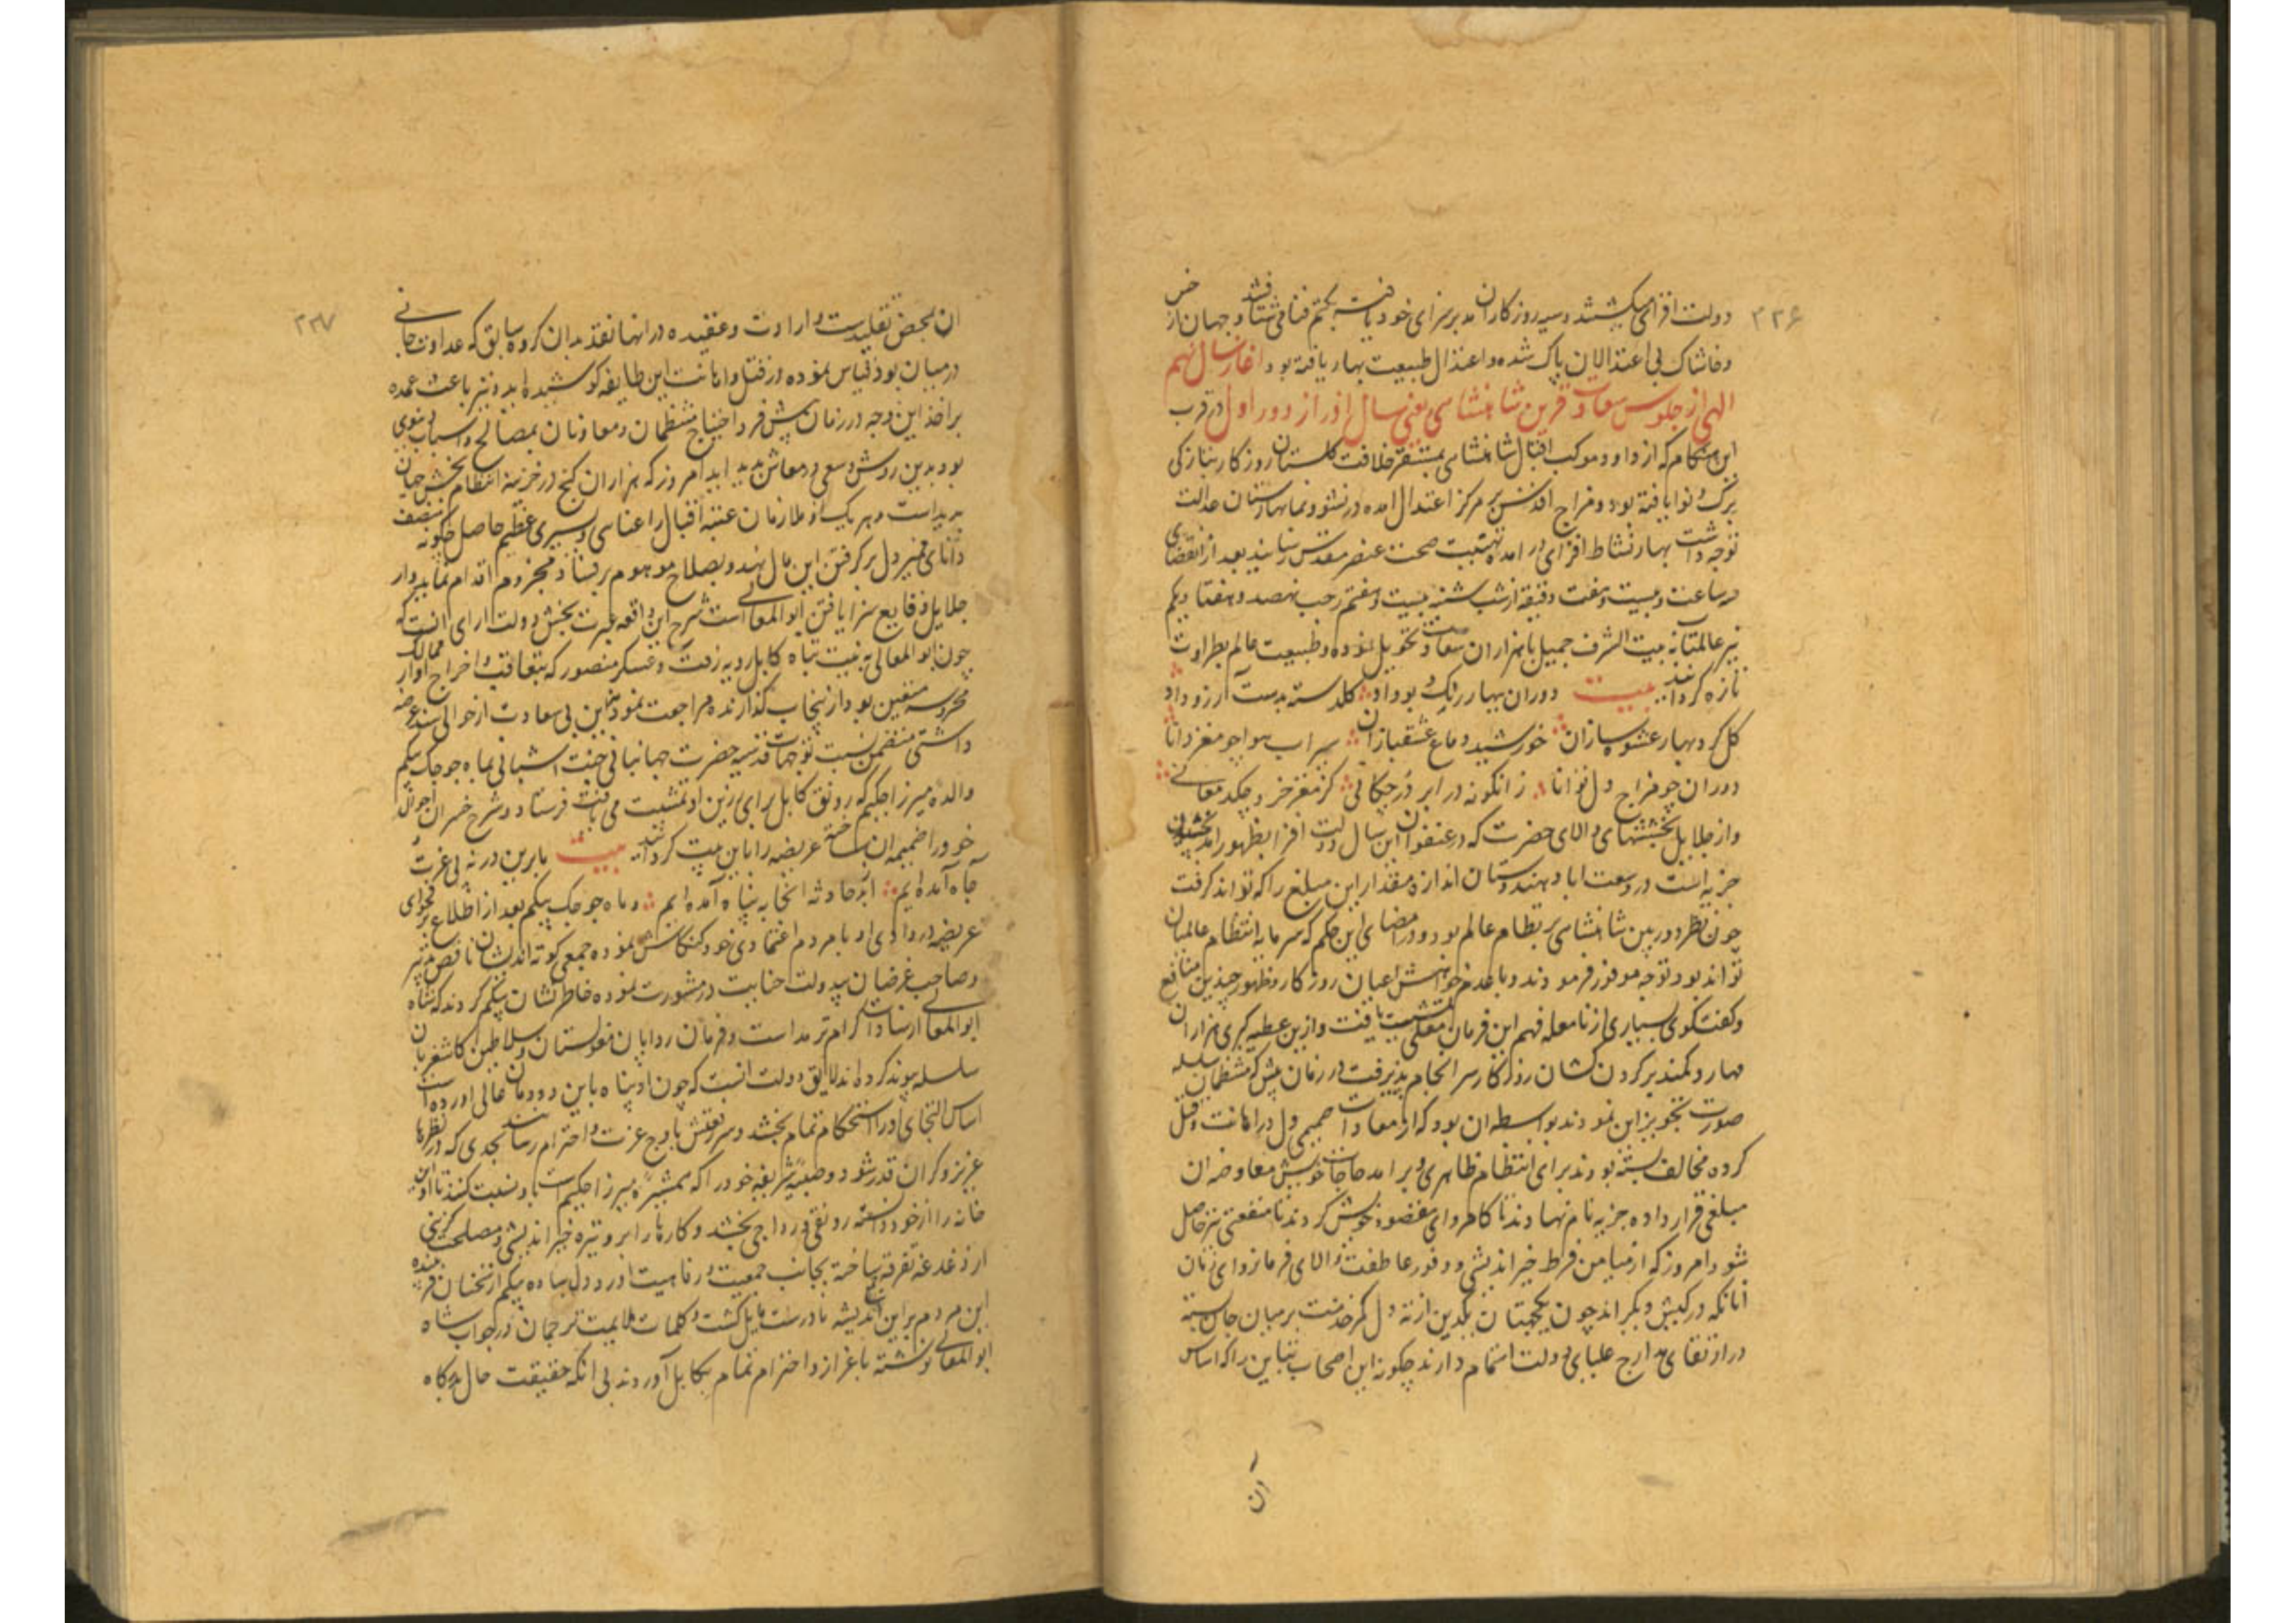 ۲۲۶
دولت افزای میکشند و سیه روزکاران بد بسزای خود یافته بختم فنا می شتافتند و جهان از خس
وخاشاک بی اعتدالان پاک شده واعتدال طبیعت بهار یافته بود اغاز سال نهم
الهی از جلوس سعادت قرین شاهنشاهی یعنی سال اذر از دور اول در قرب
این هنکام که از داود موکب اقبال شاهنشاهی بمستقر خلافت کلستان روزکار بتازکی
برک و نوا یافته بود و مزاج اقدس بر مرکز اعتدال امده در نشو و نما بهارستان عدالت
توجه داشت بهار نشاط افزای در امده تهنیت صحت عنصر مقدس رسانید بعد از انقضای
سه ساعت و بیست و هفت دقیقه از شب شنبه بیست و هفتم رجب نهصد و هفتاد و یکم
نیر عالمتاب به بیت الشرف حمیل با هزاران سعادت تحویل نموده و طبیعت عالم بطراوت
تازه کردانید بیت دوران ببهار رنک و بو داد کلدسته بدست ارزو داد
کل کرد بهار عشوه سازان خورشید دماغ عشقبازان سیراب هوا چو مغز دانا
دوران چو مزاج دل توانا زانکونه در ابر درچکانی کز مغز خرد چکد معانی
واز جلایل بخششهای والای حضرت که در عنفوان این سال دولت افزا بظهور امد بخشیدن
جزیه است در وسعت اباد هندوستان اندازه مقدار این مبلغ را که تواند کرفت
چون نظر دوربین شاهنشاهی بر نظام عالم بود و در امضای این حکم که سرمایه انتظام عالمیان
تواند بود توجه موفور فرمودند و با عدم خواهش اعیان روزکار و ظهور چندین منافع
وکفتکوی بسیاری از نامعامله فهم این فرمان معلی تمشیت یافت وازین عطیه کبری هزاران
مهار و کمند بر کردن کشان روزکار سرانجام پذیرفت در زمان پیش که منتظمان سلسله
صورت تجویز این نمودند بواسطه ان بود که از معادات صمیمی دل در اهانت و قتل
کروه مخالف بسته بودند برای انتظام ظاهری و برامد حاجات خویش معاوضه ان
مبلغی قرار داده جزیه نام نهادند تا کامروای مقصود خویش کردند تا منفعتی نیز حاصل
شود امروز که از میامن فرط خیر اندیشی و وفور عاطفت والای فرمانروای زمان
انانکه در کیش دیکر اند چون یکجهتان یکدین از ته دل کمر خدمت بر میان جان بسته
در ارتقای مدارج علیای دولت اهتمام دارند چکونه این اصحاب تباین را که اساس
ان
۲۲۷
ان بمحض تقلیدست و ارادت وعقیده در انها نقد بدان کروه سابق که عداوت جانی
درمیان بود قیاس نموده در قتل واهانت این طایفه کوشیده اید و نیز باعث عمده
بر اخذ این وجه در زمان پیش فرط احتیاج منتظمان و معاونان بمصالح واسباب دنیوی
بود بدین روش وسعی در معاش پدید اید امروز که هزاران کنج در خزینه انتظام بخش جهان
پدیداست و هر یک از ملازمان عتبه اقبال را غنای و سیری عظیم حاصل چکونه منصف
دانای ممیز دل بر کرفتن این مال نهد و بصلاح موهوم بر فساد مجزوم اقدام نماید و از
جلایل وقایع سزا یافتن ابو المعالی است شرح این واقعه عبرت بخش دولت ارای انست که
چون ابو المعالی به نیت تباه کابل رویه رفت و عسکر منصور که بتعاقب و اخراج او از ممالک
محروسه متعین بود از پنجاب کذارنده مراجعت نمود این بی سعادت از حوالی سند عرضه
داشتی متضمن نسبت توجهات قدسیه حضرت جهانبانی جنت اشیانی بماه جوجک بیکم
والده میرزا حکیم که رونق کابل برای رزین او تمشیت می یافت فرستاد و شرح خسران احوال
خود را ضمیمه ان ساخته عریضه را باین بیت کردانید بیت ما برین در نه پی عزت
جاه آمده ایم از حادثه اینجا به پناه آمده ایم و ماه جوجک بیکم بعد از اطلاع بر فحوای
عریضه در وادی او با مردم اعتمادی خود کنکاش نموده جمعی کوته اندیشان ناقص تدبیر
و صاحب غرضان بیدولت خیانت در مشورت نموده خاطر نشان بیکم کردند که شاه
ابوالمعالی از سادات کرام ترمد است و فرمان روایان مغولستان و سلاطین کاشغر بان
سلسله پیوند کرده اند لایق دولت انست که چون او پناه باین دودمان عالی اورده است
اساس التجای او را استحکام تمام بخشد و سر رفعتش باوج عزت و احترام رسانند بحدی که در نظرها
عزیز و کران قدر شود و صبیه شریفه خود را که همشیره میرزا حکیم است باو نسبت کنند تا او این
خانه را از خود دانسته رونقی و رواجی بخشد و کارها را براه و تیره خیر اندیشی و مصلحت کزینی
از دغدغه تفرقه ساخته بجانب جمعیت و رفاهیت اورد دل ساده بیکم از سخنان فریبنده
این مردم بر این اندیشه نادرست مایل کشت و کلمات ملایمت ترجمان در جواب شاه
ابوالمعالی نوشته باعزاز و احترام تمام بکابل آوردند بی انکه حقیقت حال بدرکاه